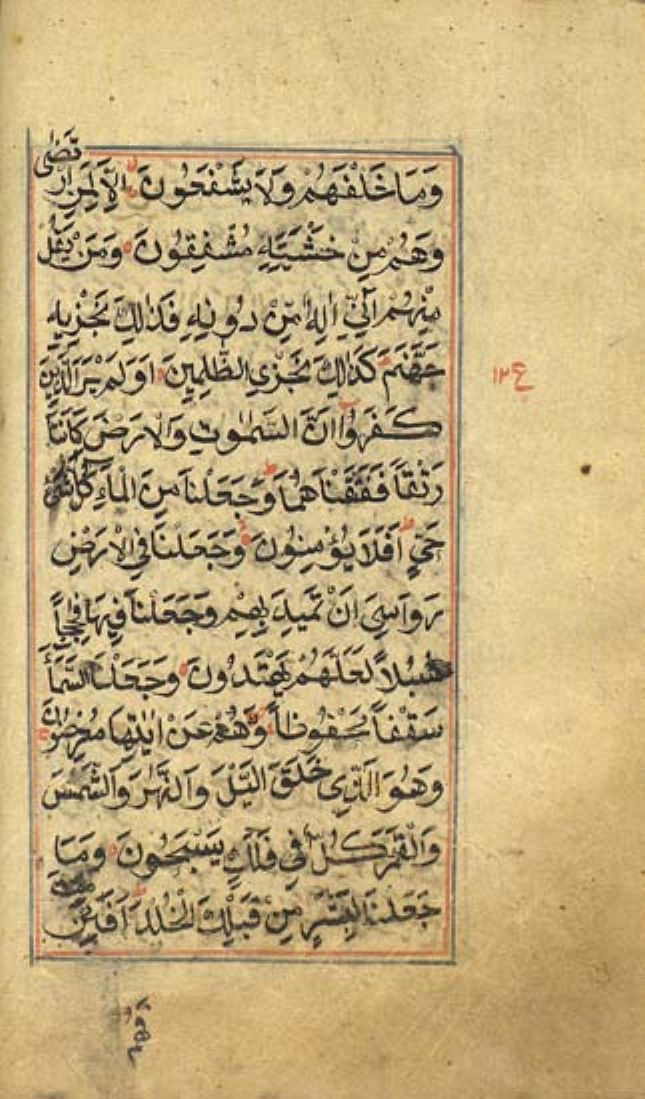 وَمَا خَلْفَهُمْ وَلَا يَشْفَعُونَ اِلَّا لِمَنِ ارْتَضٰى
وَهُمْ مِنْ خَشْيَتِهٖ مُشْفِقُونَ وَمَنْ يَقُلْ
مِنْهُمْ اِنِّى اِلٰهٌ مِنْ دُونِهٖ فَذٰلِكَ نَجْزِيهِ
جَهَنَّمَ كَذٰلِكَ نَجْزِى الظّٰلِمِينَ اَوَلَمْ يَرَ الَّذِينَ
كَفَرُوا اَنَّ السَّمٰوٰتِ وَالْاَرْضَ كَانَتَا
رَتْقًا فَفَتَقْنَاهُمَا وَجَعَلْنَا مِنَ الْمَاءِ كُلَّ شَىْءٍ
حَىٍّ اَفَلَا يُؤْمِنُونَ وَجَعَلْنَا فِى الْاَرْضِ
رَوَاسِىَ اَنْ تَمِيدَ بِهِمْ وَجَعَلْنَا فِيهَا فِجَاجًا
سُبُلًا لَعَلَّهُمْ يَهْتَدُونَ وَجَعَلْنَا السَّمَاءَ
سَقْفًا مَحْفُوظًا وَهُمْ عَنْ اٰيٰتِهَا مُعْرِضُونَ
وَهُوَ الَّذِى خَلَقَ الَّيْلَ وَالنَّهَارَ وَالشَّمْسَ
وَالْقَمَرَ كُلٌّ فِى فَلَكٍ يَسْبَحُونَ وَمَا
جَعَلْنَا لِبَشَرٍ مِنْ قَبْلِكَ الْخُلْدَ اَفَائِنْ